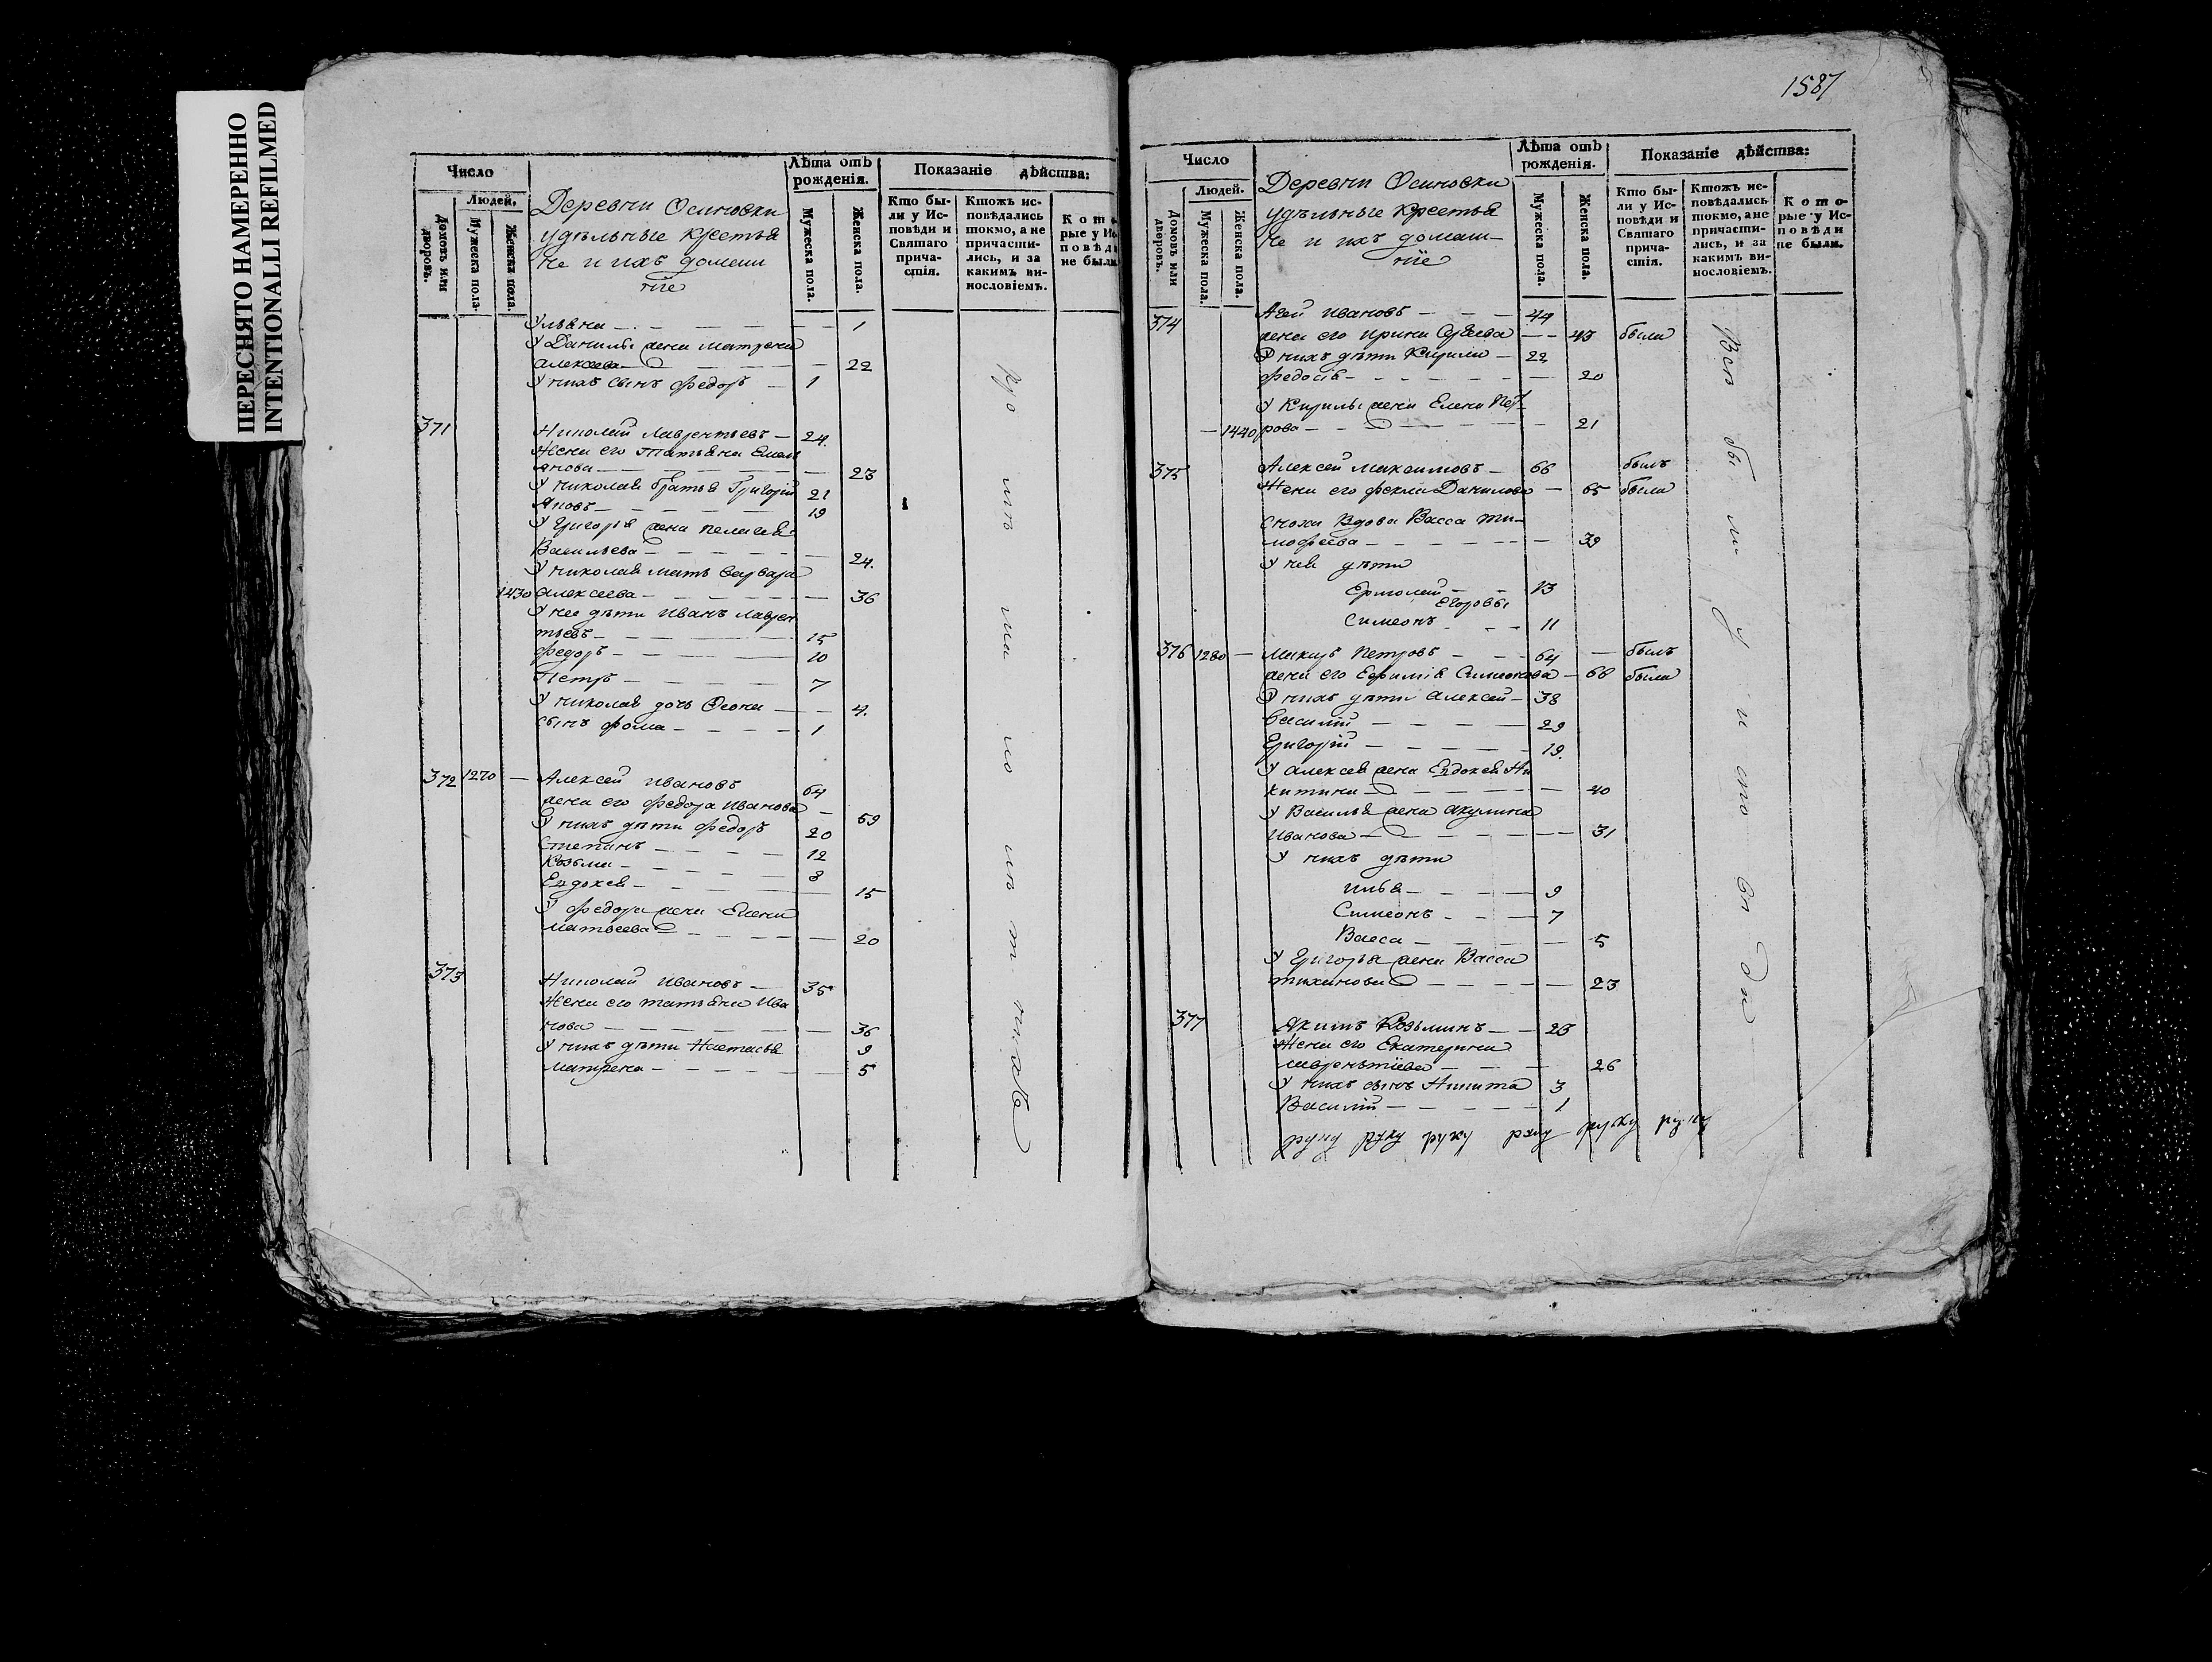 ПЕРЕСНЯТО НАМЕРЕННО
INTENTIONALLI REFILMED
Число
Людей.
Домовъ или дворовъ.
Мужеска пола.
Женска пола.
Деревни Осиновки
удѣльные крестья
не и ихъ домаш
нїе
Лѣта отъ рожденія.
Мужеска пола.
Женска пола.
Показаніе дѣйства:
Кто бы-
ли у Ис-
повѣди и
Святаго
прича-
стія.
Ктожъ ис-
повѣдались
токмо, а не
причасти-
лись, и за
какимъ ви-
нословіемъ.
Кото
рые у Ис
повѣди
не были
Ульяна 1
У Данилы жена Матрена
Алексеева 22
У нихъ сынъ Федоръ 1
371 Николай Лаврентьевъ 24.
Жена его Татьяна Емель
янова 23
У Николая братья Григорій 21
Яковъ 19
У Григорья жена Пелагея
Васильева 24.
У Николая мать Варвара
1430 Алексеева 36
У нее дѣти Иванъ Лаврен
тьевъ 15
Федоръ 10
Петръ 7
У Николая дочь 4.
сынъ Фома 1
372 1270 Алексей Ивановъ 64
жена его Федора Иванова 59
У нихъ дѣти Федоръ 20
Степанъ 12
Козьма 8
Евдокея 15
У Федора жена Елена
Матвеева 20
373 Николай Ивановъ 35
Жена его Татьяна Ива
нова 36
У нихъ дѣти Настасья 9
Матрена 5
1587
Число
Людей.
Домовъ или дворовъ.
Мужеска пола.
Женска пола.
Деревни Осиновки
удѣльные крестья
не и ихъ домаш-
нїе
Лѣта отъ рожденія.
Мужеска пола.
Женска пола.
Показаніе дѣйства:
Кто бы-
ли у Ис-
повѣди и
Святаго
прича-
стія.
Ктожъ ис-
повѣдались
токмо, а не
причасти-
лись, и за
какимъ ви-
нословіемъ.
Кото-
рые у Ис-
повѣди
не были.
374 Агей Ивановъ 44
жена его Ирина Сергеева 43 была
У нихъ дѣти Кирила 22
Федосія 20
У Кирилы жена Елена Пет-
1440 рова 21
375 Алексей Максимовъ 66 былъ
Жена его Фекла Данилова 65 была
Сноха Вдова Васса Ти-
мофеева 39
У нея дѣти
Ермолай 13
Егоровы
Симеонъ 11
376 1280 Макаръ Петровъ 64 былъ
жена его Ефимія Симеонова 68 была
У нихъ дѣти Алексей 38
Василій 29
Григорій 19.
У Алексея жена Евдокея Ни
китина 40
У Василья жена Акулина
Иванова 31
У нихъ дѣти
Илья 9
Симеонъ 7
Васса 5
У Григорья жена Васса
Тиханова 23
377 Якимъ Козьминъ 23
Жена его Екатерина
Лаврентіева 26
У нихъ сынъ Никита 3
Василій 1
руку руку руку руку